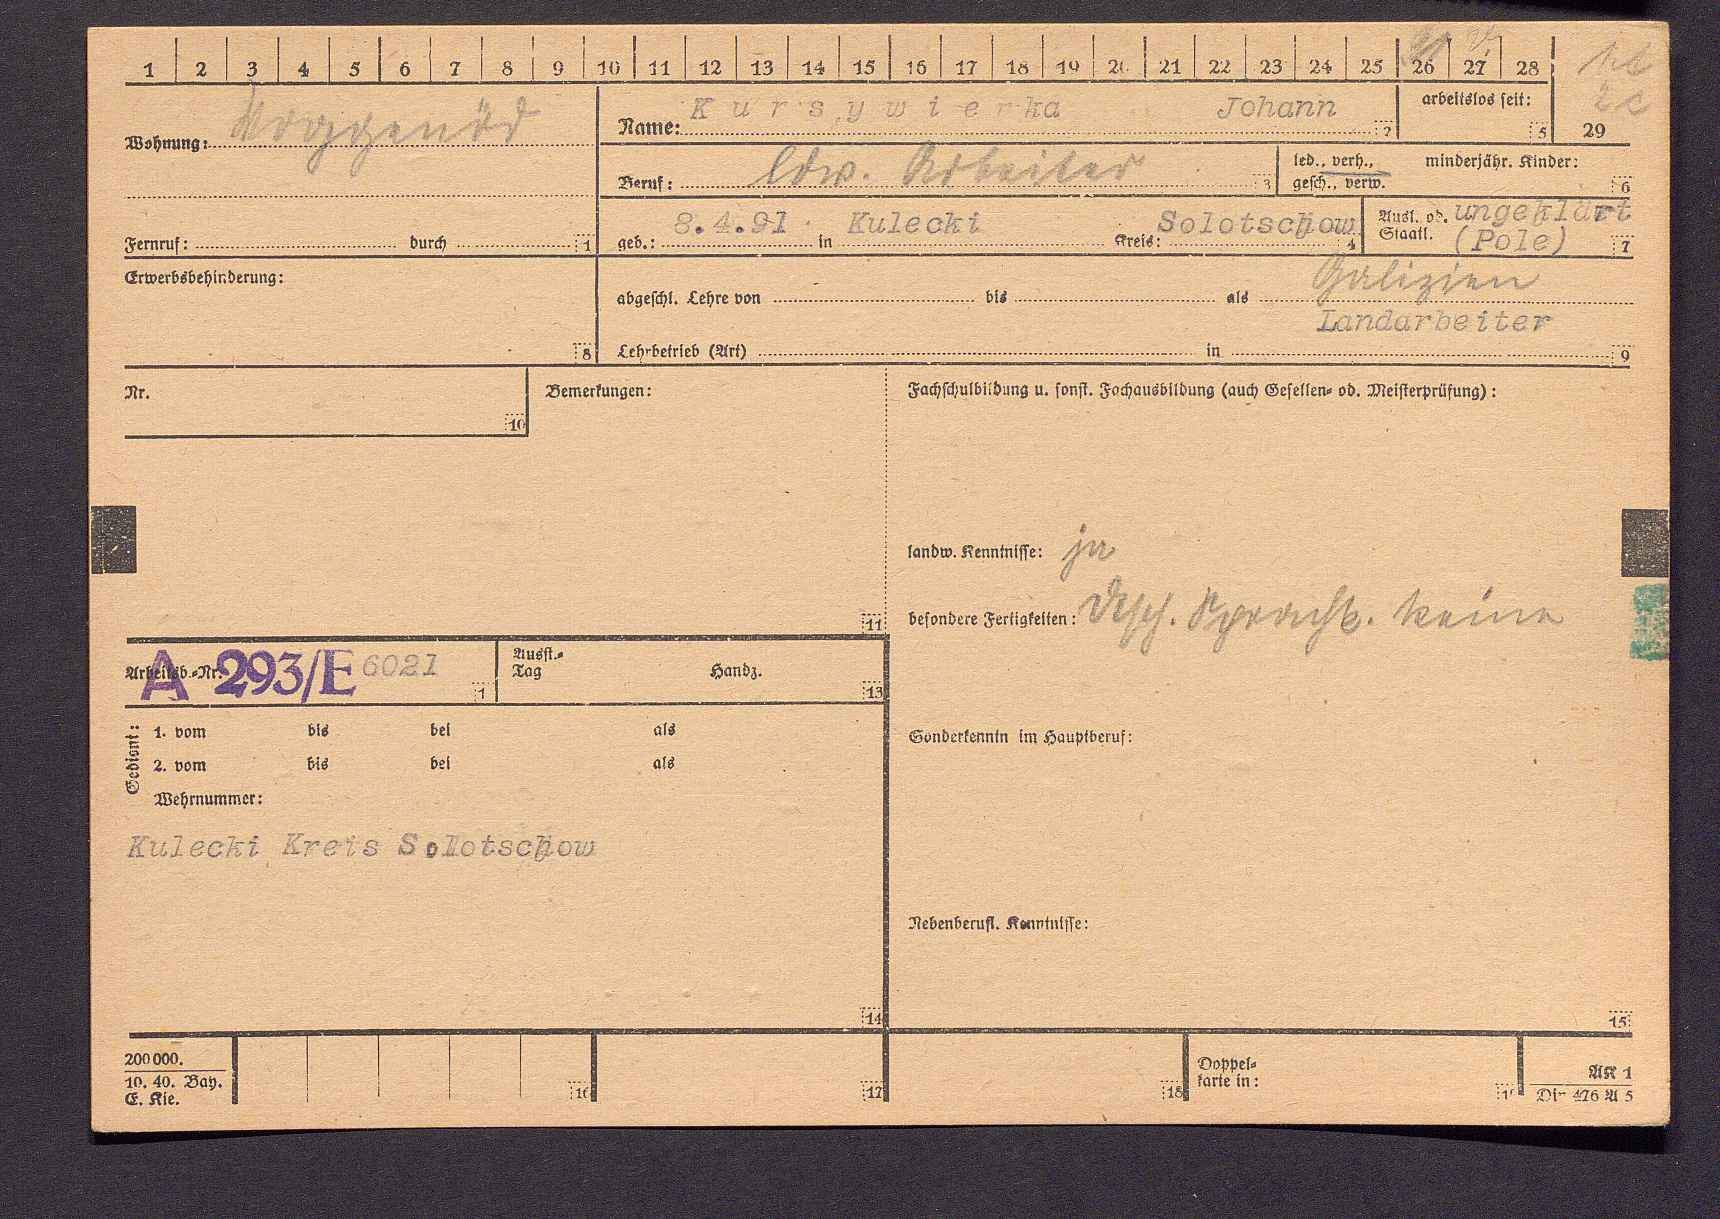 1 2 3 4 5 6 7 8 9 10 11 12 13 14 15 16 17 18 19 20 21 22 23 24 25 26 27 28
Wohnung: Roggenöd
Name: Kursywierka Johann 2
arbeitslos seit: 5
29
Beruf: ldw. Arbeiter 3
led., verh., gesch., verw.
minderjähr. Kinder: 6
Fernruf: durch 1
geb.: 8.4.91 in Kulecki Kreis: Solotschow 4
Ausl. od. Staatl. ungeklärt (Pole) 7
Erwerbsbehinderung: 8
abgeschl. Lehre von bis als Galizien
Landarbeiter
Lehrbetrieb (Art) in 9
Nr. 10
Bemerkungen: 11
Fachschulbildung u. sonst. Fachausbildung (auch Gesellen- od. Meisterprüfung):
landw. Kenntnisse: ja
besondere Fertigkeiten: dtsch. Sprachk. keine
Arbeitsb.-Nr. A 293/E 6021
Ausst.-Tag Handz. 13
Gedient:
1. vom bis bei als
2. vom bis bei als
Wehrnummer:
Sonderkenntn im Hauptberuf:
Kulecki Kreis Solotschow
Nebenberufl. Kenntnisse:
14
15
200000.
10. 40. Bay.
E. Kie.
16
17
18
Doppel-
karte in:
AK 1
Din 476 A 5